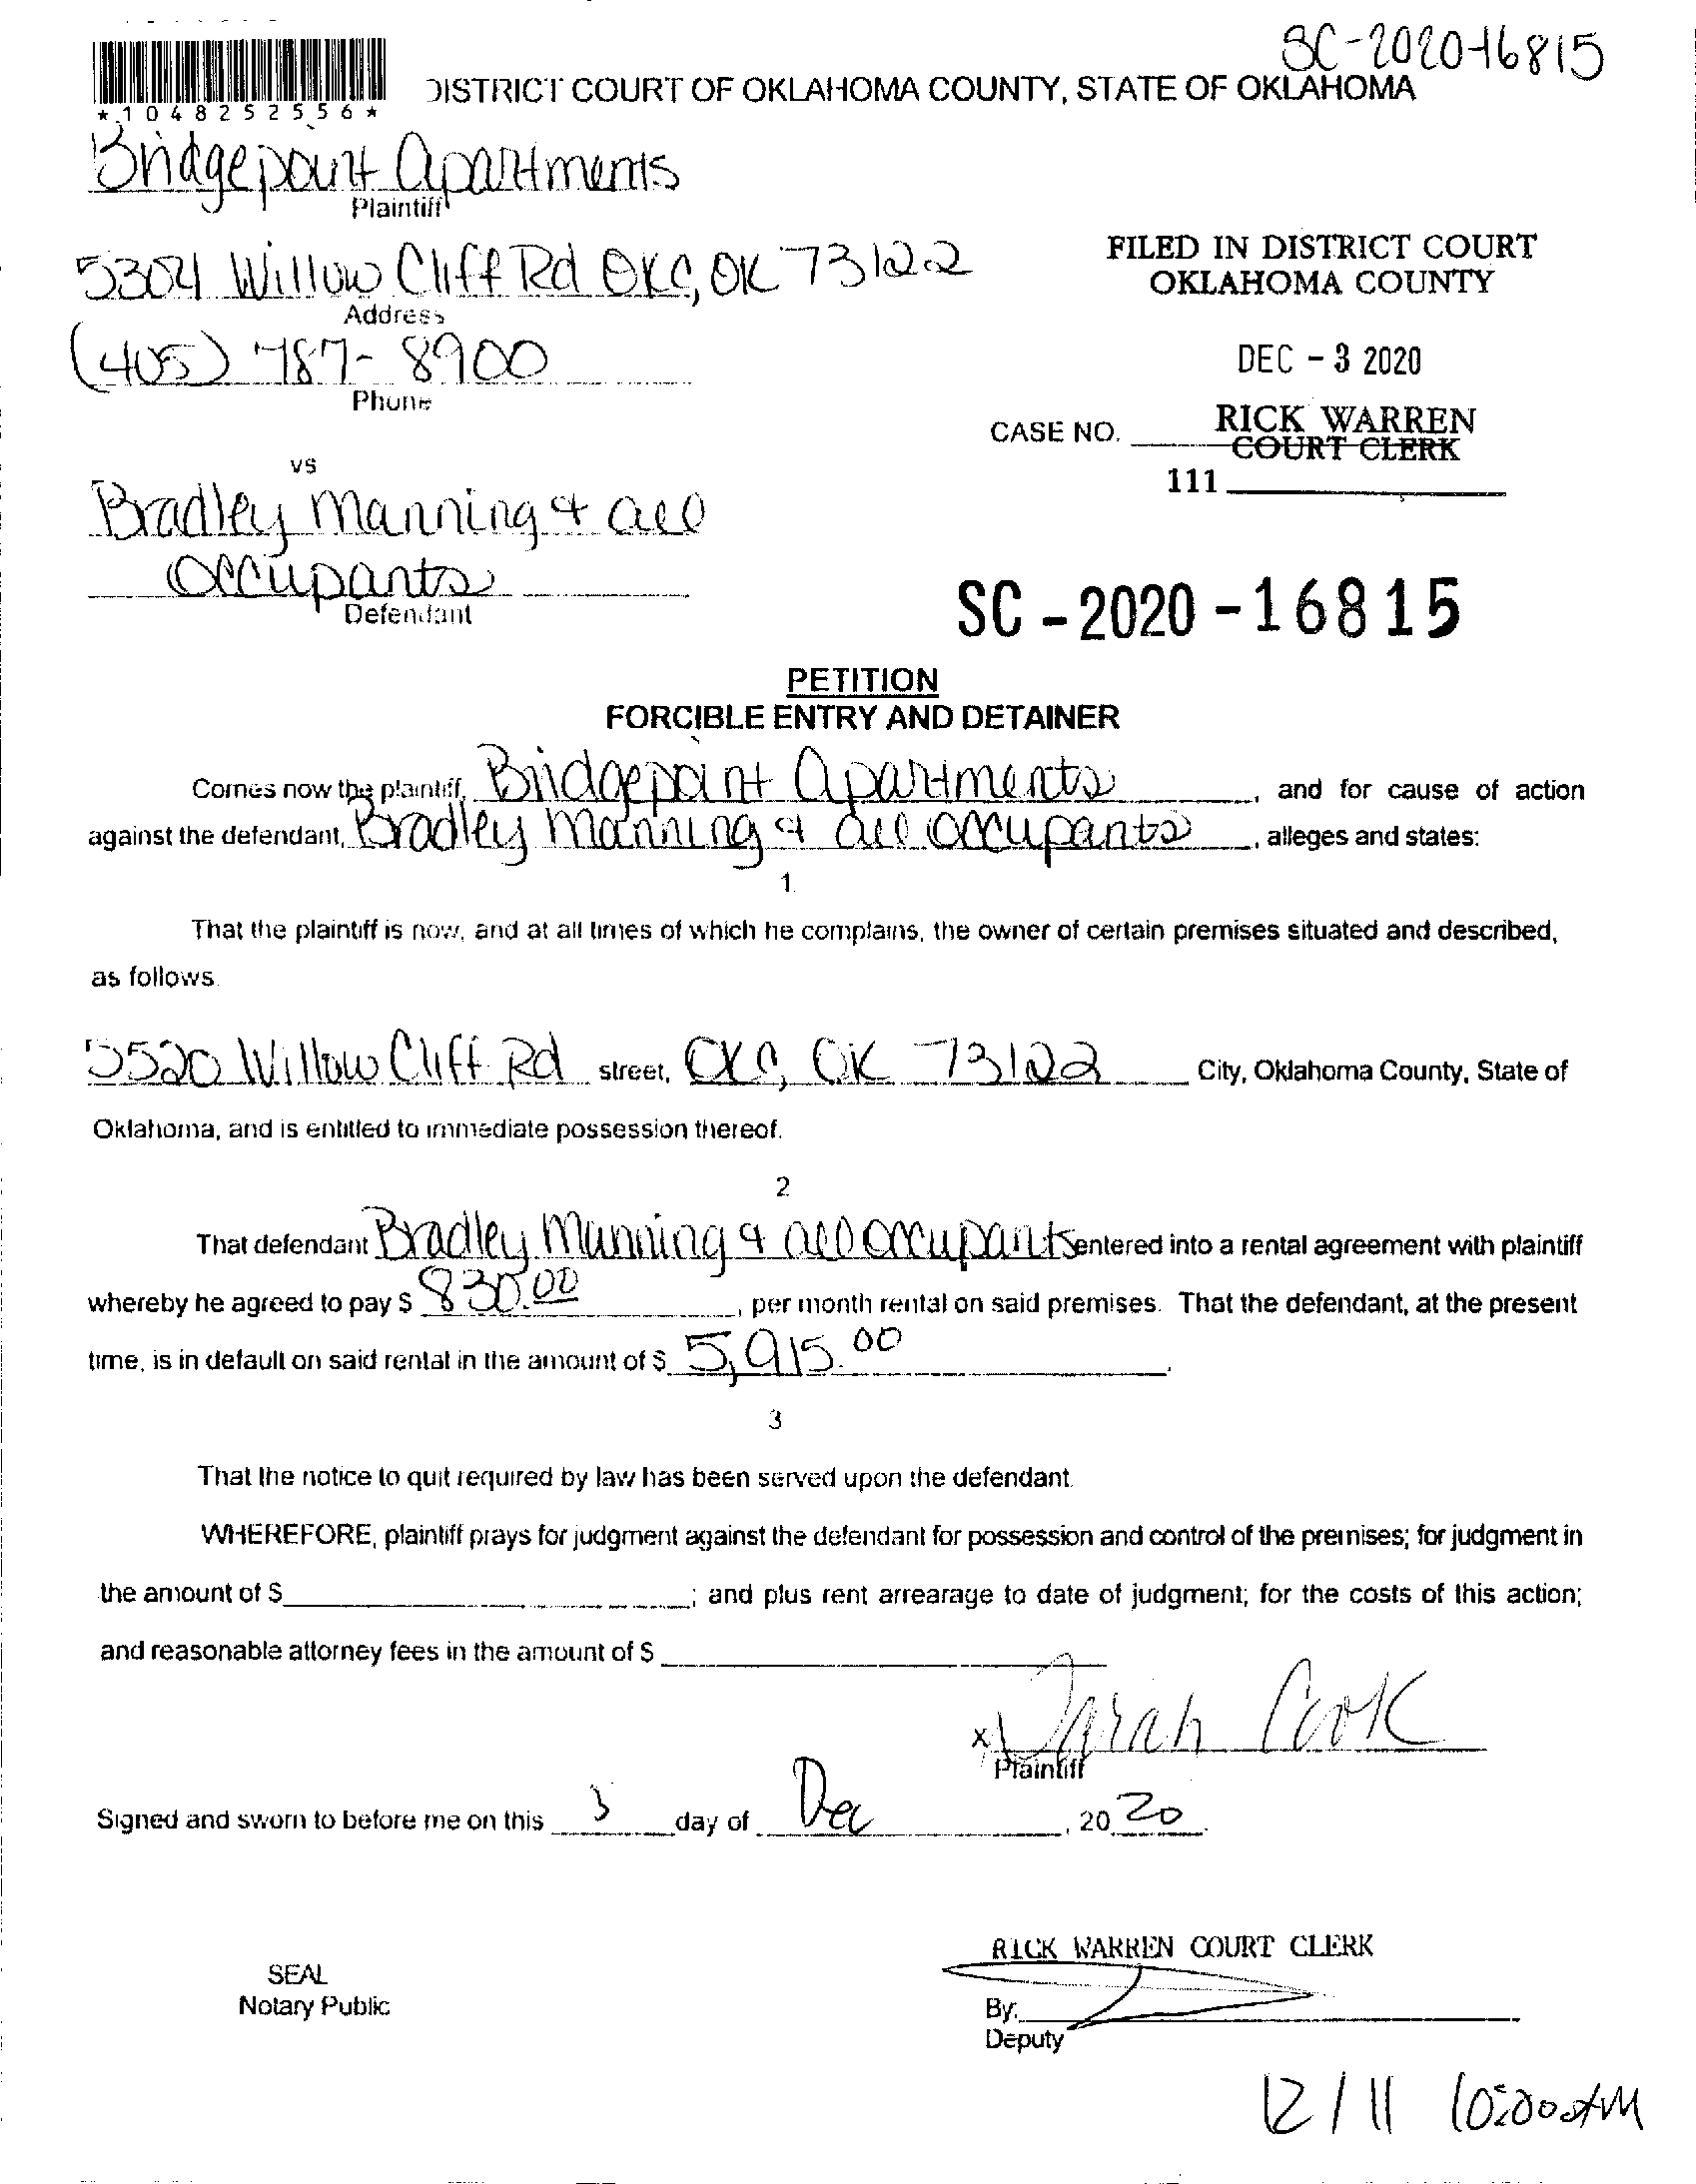 SC-2020-16815
*1048252556*
DISTRICT COURT OF OKLAHOMA COUNTY, STATE OF OKLAHOMA
Bridgepoint Apartments
Plaintiff
5304 Willow Cliff Rd OKC, OK 73122
Address
FILED IN DISTRICT COURT
OKLAHOMA COUNTY
(405) 787-8900
Phone
DEC - 3 2020
CASE NO.
RICK WARREN
COURT CLERK
111
vs
Bradley Manning & all
Occupants
Defendant
SC-2020-16815
PETITION
FORCIBLE ENTRY AND DETAINER
Comes now the plaintiff, Bridgepoint Apartments, and for cause of action
against the defendant, Bradley Manning & all occupants, alleges and states:
1
That the plaintiff is now, and at all times of which he complains, the owner of certain premises situated and described,
as follows.
5520 Willow Cliff Rd street, OKC, OK 73122 City, Oklahoma County, State of
Oklahoma, and is entitled to immediate possession thereof.
2
That defendant Bradley Manning & all occupants entered into a rental agreement with plaintiff
whereby he agreed to pay $ 830.00, per month rental on said premises. That the defendant, at the present
time, is in default on said rental in the amount of $ 5,915.00.
3
That the notice to quit required by law has been served upon the defendant.
WHEREFORE, plaintiff prays for judgment against the defendant for possession and control of the premises; for judgment in
the amount of $; and plus rent arrearage to date of judgment; for the costs of this action;
and reasonable attorney fees in the amount of $
x Sarah Cook
Plaintiff
Signed and sworn to before me on this 3 day of Dec, 2020.
RICK WARREN COURT CLERK
SEAL
Notary Public
By:
Deputy
12/11 10:00 AM